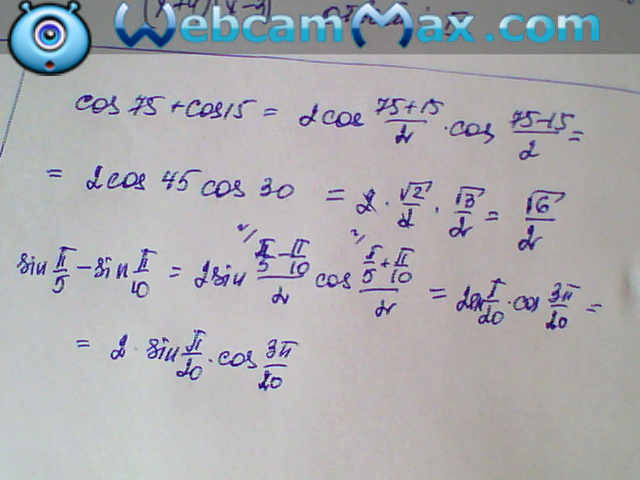 WebcamMax.com
cos 75 + cos 15 = 2 cos (75+15)/2 · cos (75-15)/2 =
= 2 cos 45 cos 30 = 2 · √2/2 · √3/2 = √6/2
sin π/5 - sin π/10 = 2 sin (π/5 - π/10)/2 cos (π/5 + π/10)/2 = 2 sin π/20 · cos 3π/20 =
= 2 · sin π/20 · cos 3π/20